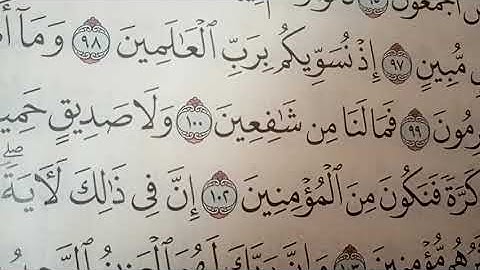 أَجْمَعُونَ ٩٥
مُّبِينٍ ٩٧ إِذْ نُسَوِّيكُم بِرَبِّ ٱلْعَـٰلَمِينَ ٩٨ وَمَآ
٩٩ فَمَا لَنَا مِن شَـٰفِعِينَ ١٠٠ وَلَا صَدِيقٍ
كَرَّةً فَنَكُونَ مِنَ ٱلْمُؤْمِنِينَ ١٠٢ إِنَّ فِى ذَٰلِكَ لَـَٔايَةً ۖ
مُّؤْمِنِينَ وَإِنَّ رَبَّكَ لَهُوَ ٱلْعَزِيزُ